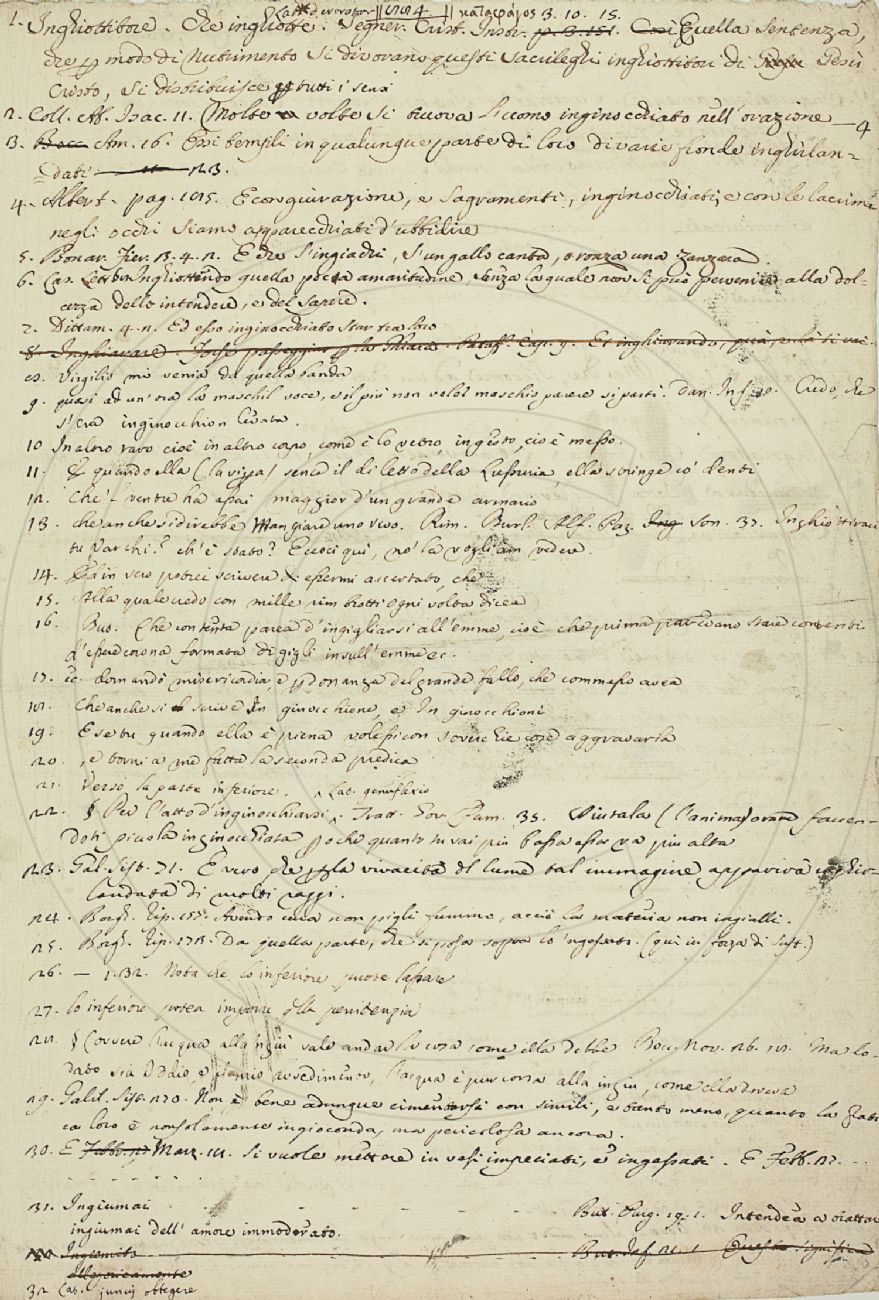 Latt. devorator || 4 || καταφάγος 3. 10. 15.
1. Inghiottitore. Che inghiotte. Segner. Crist. Instr. Quella sentenza,
che modo di Nutrimento si divorano questi sacrileghi inghiottitori di Gesù
Cristo, si distribuisce tutti i sensi
2. Coll. Ab. Isac. 11. Molte volte si truova siccome inginocchiato nell'orazione — 4
3. Am. 16. Essi templi in qualunque parte di loro di varie fronde inghirlan=
= dati 23.
4. Albert. pag. E congiurazione, e Sagramenti, inginocchiati, e con le lacrime
negli occhi siamo apparecchiati d'ubbidire
5. Bonar. Fier. 3. 4. 2. E che s'ingiachi, s'un gallo canta, o ronza una Zanzara.
6. Cas. Lett. Inghiottendo quella poca amaritudine, senza la quale non si può pervenire alla dol=
cezza dello intendere, e del sapere.
7. Dittam. 4. Ed esso inginocchiato star tra loro
8. Inghiarare.
Virgilio mi venia da quella banda
9. quasi ad un'ora la maschil voce, e il più non volol maschio parere si partì. Dan. Inf. 10. Credo, che
s'era inginocchion levata.
10 In altro vavo cioè in altro corpo, come è lo vetro, ingesto, cioè messo.
11. E quando ella senta il diletto della Lussuria, ella stringe co' denti
12. Che'l ventre ha assai maggior d'un grande armario
13. che anche si direbbe Mangiare uno vivo. Rim. Burl. Alf. Paz. son. 37. Inghiottirai
tu Varchi? ch'è stato? E uoci qui, no' la vogliam vedere.
14. Ed in vero potrei scrivere d' essermi accertato, che
15. Alla quale credo con mille rimbrotti ogni volta dicea
16. But. Che contenta parea d'ingigliarsi all'emme, cioè che prima pareano stare contenti
d'essere corona formata di gigli in sull'emme ec.
17. ec. domandò misericordia, e perdonanza del grande fallo, che commesso avea
18. Che anche si scrive In ginocchione, e In ginocchioni
19. E se tu quando ella è piena volessi con soverchie cose aggravarla
20. , e torni a me fatta la seconda predica
21. Verso la parte inferiore. Lat. genuflexio
22. § Per l'atto d'inginocchiarsi. Tratt. Gov. Fam. 35. Aiutala (l'anima) orare facen=
doti piccola inginocchiata che quanto tu vai più bassa essa va più alta
23. Gal. Sist. 71. E vero, che per la vivacità del lume tal immagine appariva inghir=
landata di molti raggi.
24. Borgh. Rip. Avendo cura non pigli fummo, acciò la materia non ingialli.
25. Borgh. Rip. Da quella parte, che si posa sopra lo 'ngessato. (qui in forza di Sust.)
26. — 1. 32. Nota che lo 'nferiore puote lassare
27. lo inferiore potea imporre la penitenzia
28. § Correre l'acqua alla 'ngiù vale andar la cosa come ella debbe Bocc. Nov. 26. Ma lo=
dato sia Iddio, e avvedimento, l'acqua è pur corsa alla ingiù, come ella dovea
29. Galil. Sist. 270. Non è bene adunque cimentarsi con simili, e tanto meno, quanto la fati
ca loro è non solamente ingioconda, ma pericolosa ancora.
30. E Marz. Si vuole mettere in vasi impeciati, e ingessati. E Febb. 12. --
- - - - - - -
31. Ingiumai - - - - - - But. Purg. 19. 1. Intendea a trattar
ingiumai dell' amore immoderato.
allegoricamente
32 Lat. juncis obtegere